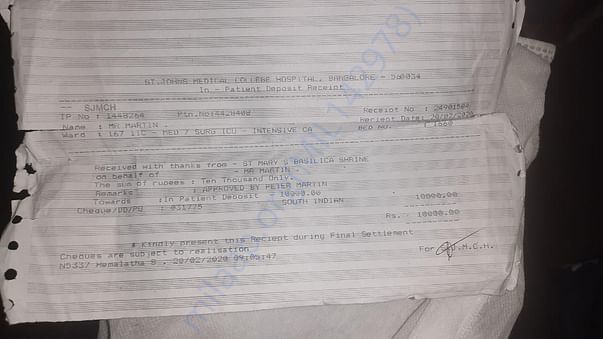 ST.JOHNS MEDICAL COLLEGE HOSPITAL, BANGALORE - 560034
In - Patient Deposit Receipt
SJMCH
IP No : 1448264 Ptn.No:4420408 Receipt No :
Name : MR MARTIN . 20/02/2020
Ward : - MED / SURG ICU - INTENSIVE CA BED NO.
Received with thanks from - ST MARY S BASILICA SHRINE
on behalf of - MR MARTIN
The sum of rupees : Ten Thousand Only.
Remarks : APPROVED BY PETER MARTIN
Towards :In Patient Deposit 10000.00 10000.00
Cheque/DD/PO : 031775 SOUTH INDIAN
Rs. 10000.00
# Kindly present this Recient during Final Settlement
Cheques are subject to realisation
N5337 Hemalatha S . 20/02/2020 09:05:47 For S.J.M.C.H.
milaap.org (MIL142978)